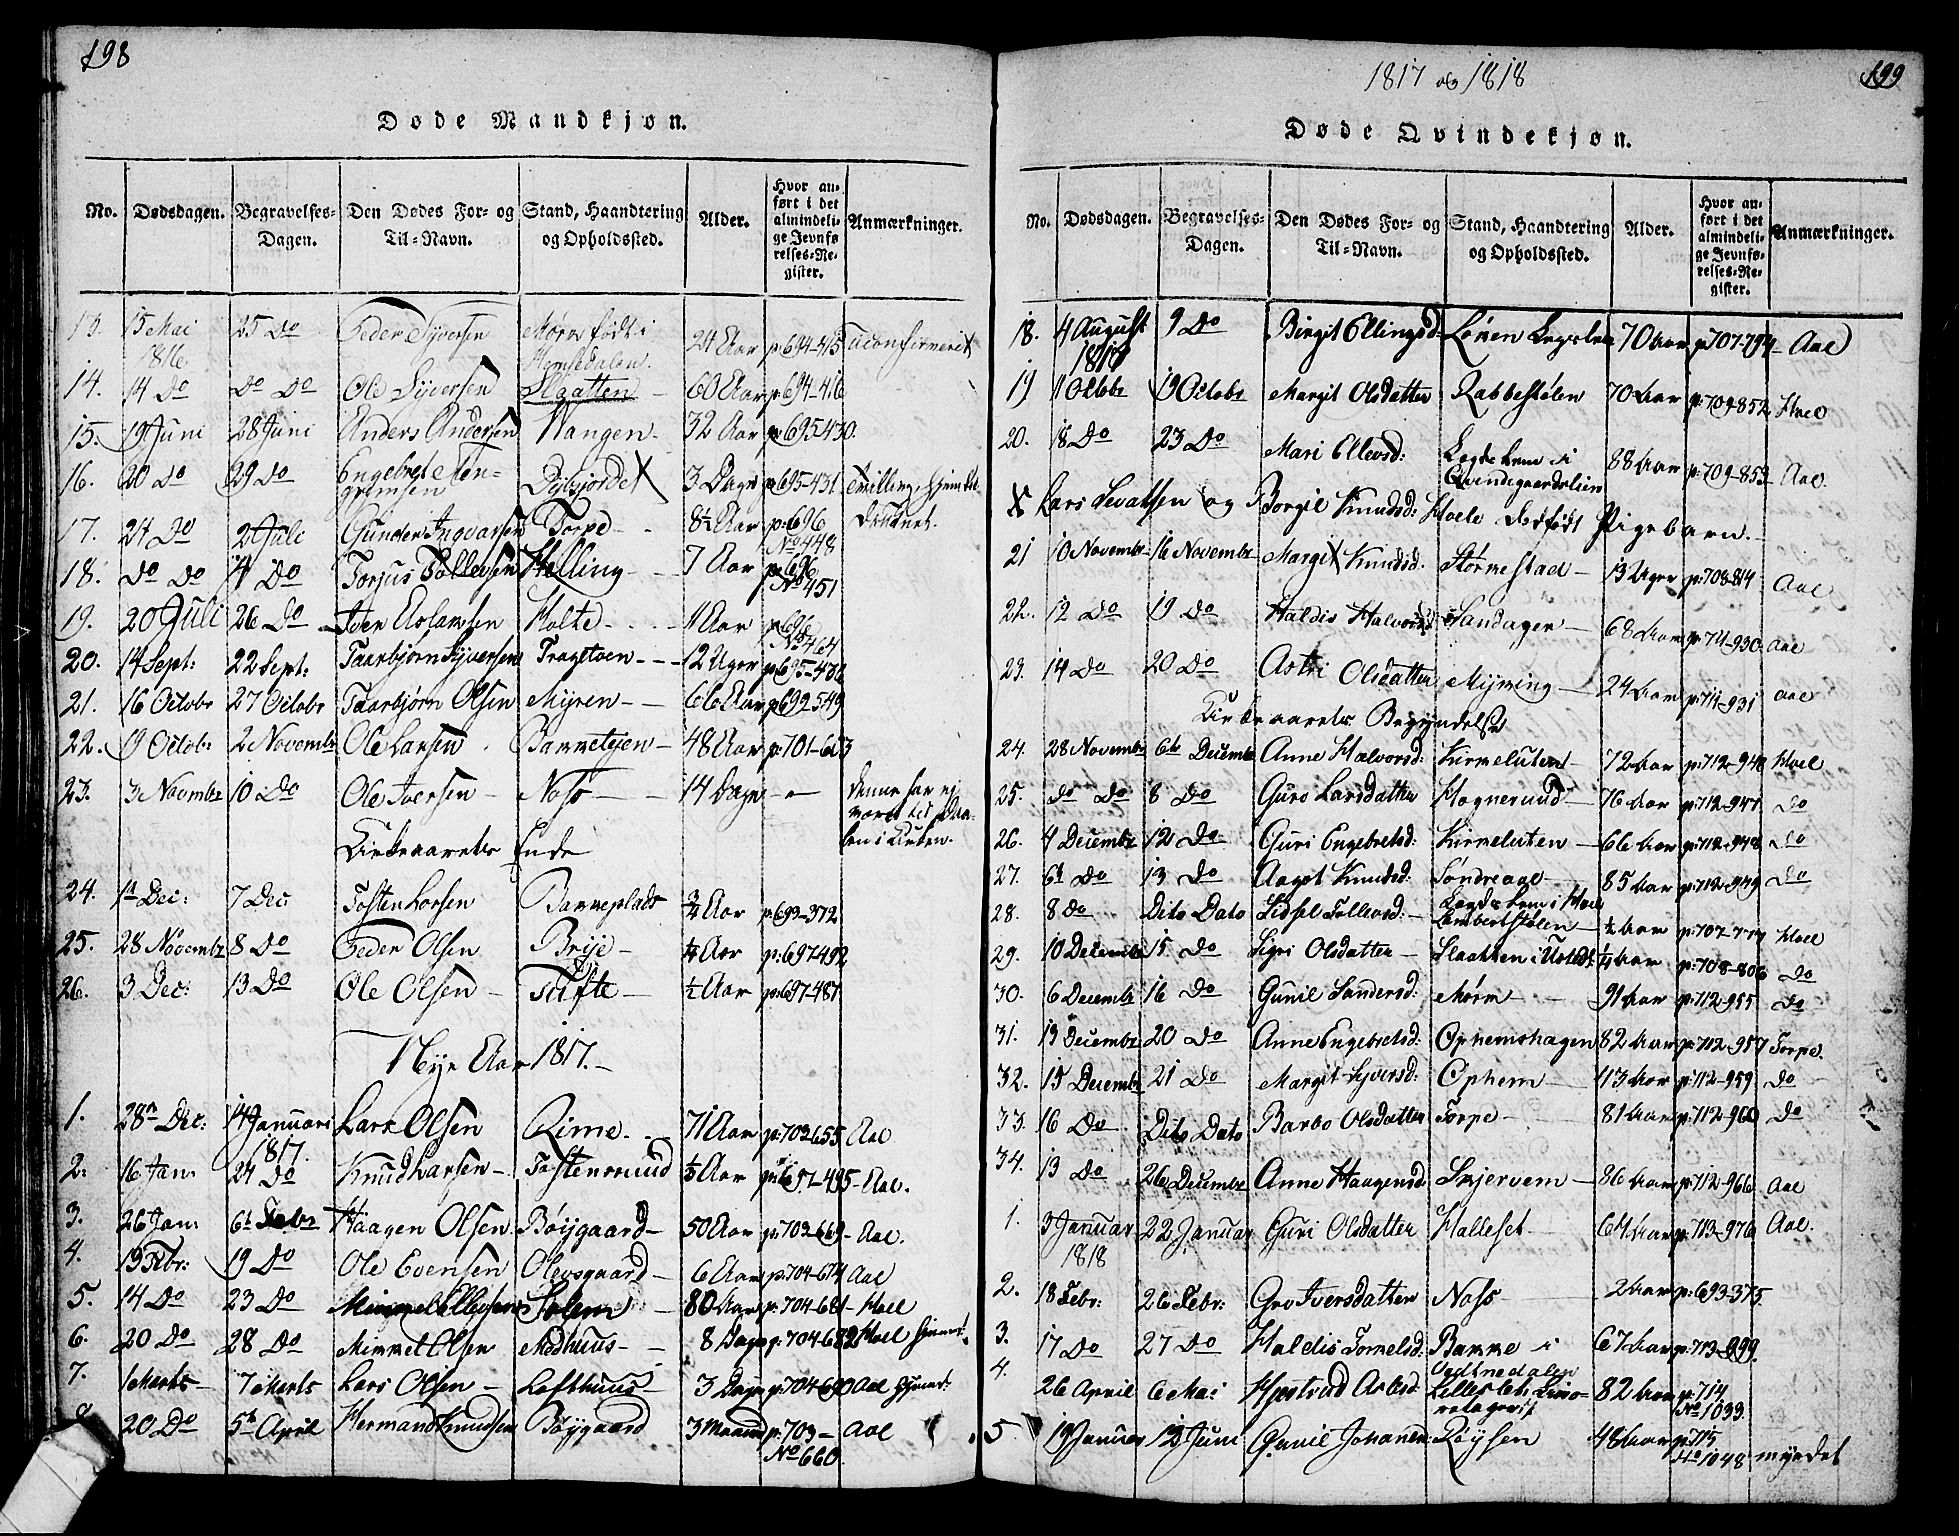 198
Døde Mandkjøn.
No. Dødsdagen. Begravelses-Dagen. Den Dødes For- og Til-Navn. Stand, Haandtering og Opholdssted. Alder. Hvor anført i det almindelige Jevnførelses-Register. Anmærkninger.
13. 15 Mai 1816 25 Do Peder Syversen Mørn født i Hemsedalen. 24 Aar p: 694-415 uconfirmeret
14. 14 Do Do Do Ole Syversen Slaatten 60 Aar p: 694-416
15. 19 Juni 28 Juni Anders Andersen Wangen 32 Aar p: 695-430.
16. 20 Do 29 Do Engebret 3 Dage p: 695-431
17. 24 Do 2 Juli Gunder Ingvarsen Torpe 8½ Aar p: 696 No 448
18. Do Do 4 Do Torjus Tollevsen Helling 7 Aar p: 696 No 451
19. 20 Juli 26 Do Iver Aslaksen Holte 11 Aar p: 696 No 464
20. 14 Sept: 22 Sept: Taarbjørn Syversen Trageton 12 Uger p: 695-436
21. 16 Octobr 27 Octobr Taarbjørn Olsen Myren 66 Aar p: 699-549
22. 19 Octobr 2 Novembr Ole Larsen 48 Aar p: 701-603
23. 3 Novmbr 10 Do Ole Iversen Noss 14 Dage — Denne har ej været til Daaben i Kirken.
Kirkeaarets Ende
24. 1te Dec: 7 Dec Tosten Larsen Barreplads ¾ Aar p: 693-372
25. 28 Novembr 8 Do Peder Olsen Brye ¼ Aar p: 697-492
26. 3 Dec: 13 Do Ole Olsen Tufte ½ Aar p: 697-487
Nye Aar 1817.
1. 28n Dec: 14 Januari 1817. Lars Olsen Rime 71 Aar p: 703-655 Aal
2. 16 Jan: 24 Do Knud Larsen Tostensruud ½ Aar p: 697-495 Aal.
3. 26 Jan: 6te Febr Haagen Olsen Bøygaard 50 Aar p: 703-669 Aal.
4. 13 Febr: 19 Do Ole Evensen Olevsgaard 6 Aar p: 704-674 Aal
5. 14 Do 23 Do Mimmel Ellevsen Solem 80 Aar p: 704-681 Hoel
6. 20 Do 28 Do Mimmet Olsen Medhuus 8 Dage p: 704-682 Hoel
7. 1 Marts 7 Marts Lars Olsen Lofthuus 3 Dage p: 704-690 Aal
8 20 Do 5te April Herman Knudsen Bøygaard 3 Maand p: 703 No 660. Aal
1817 og 1818
199
Døde Qvindekjøn.
No. Dødsdagen. Begravelses-Dagen. Den Dødes For- og Til-Navn. Stand, Haandtering og Opholdssted. Alder. Hvor anført i det almindelige Jevnførelses-Register. Anmærkninger.
18. 4 August 1817 9 Do Birgit Ellingsd: Løven 70 Aar p: 707-794 Aal
19 11 Octobr 19 Octobr Margit Olsdatter Rabbestølen 70 Aar p: 709-852 Hoel
20. 18 Do 23 Do Mari Ellevsd: Legdelem i Qvindegaardslien 88 Aar p: 709-853 Aal
X Lars Sevatsen og Borgil Knudsd: Hoele dødfødt Pigebarn.
21 10 Novembr 16 Novembr Margit Knudsd: Størnestad 13 Uger p: 708-814 Aal
22. 12 Do 19 Do Haldis Halvorsd: Sandager 68 Aar p: 711-930 Aal
23. 14 Do 20 Do Astri Olsdatter Myring 24 Aar p: 711-931 Aal
Kirkeaarets Begyndelse
24. 28 Novembr 6te Decembr Anne Halvorsd: Kirmeluten 72 Aar p: 712-946 Hoel
25. Do Do 8 Do Guro Larsdatter Hagnerund 76 Aar p: 712-947 Do
26. 4 Decembr 12 Do Guri Engebretsd: Kirmeluten 66 Aar p: 712-948 Do
27. 6te Do 13 Do Aagot Knudsd: Søndreaal 85 Aar p: 712-949 Do
28. 8 Do Dito Dato Sidsel Tollevsd: Legdelem i Hoel Lambertstølen ½ Aar p: 707-777 Hoel
29. 10 Decembr 15 Do Sigri Olsdatter Slaatten i Ustedl: ¼ Aar p: 708-806 Do
30. 6 Decembr 16 Do Gunil Sandersd: Mørn 91 Aar p: 712-955 Do
31. 13 Decembr 20 Do Anne Engebretsd: Ophemshagen 82 Aar p: 712-957 Torpe.
32. 15 Decembr 21 Do Margit Syversd: Ophem 43 Aar p: 712-959 Do
33. 16 Do Dito Dato Barbo Olsdatter Torpe 81 Aar p: 712-960 Do
34. 13 Do 26 Decembr Anne Haagensd: Skjervem 86 Aar p: 712-966 Aal
1. 3 Januar 1818 22 Januar Guri Olsdatter Halleset 64 Aar p: 713-976 Aal.
2. 18 Febr: 26 Febr: Gro Iversdatter Noss 2 Aar p: 693-375
3. 17 Do 27 Do Haldis Tomelsd: i Vedtnedalen 67 Aar p: 713-999.
4. 26 April 6 Mai 82 Aar p: 714 No 1033.
5 19 Januar 12 Juni Gunil Johansen Røysen 48 Aar p: 715 No 1048 myrdet